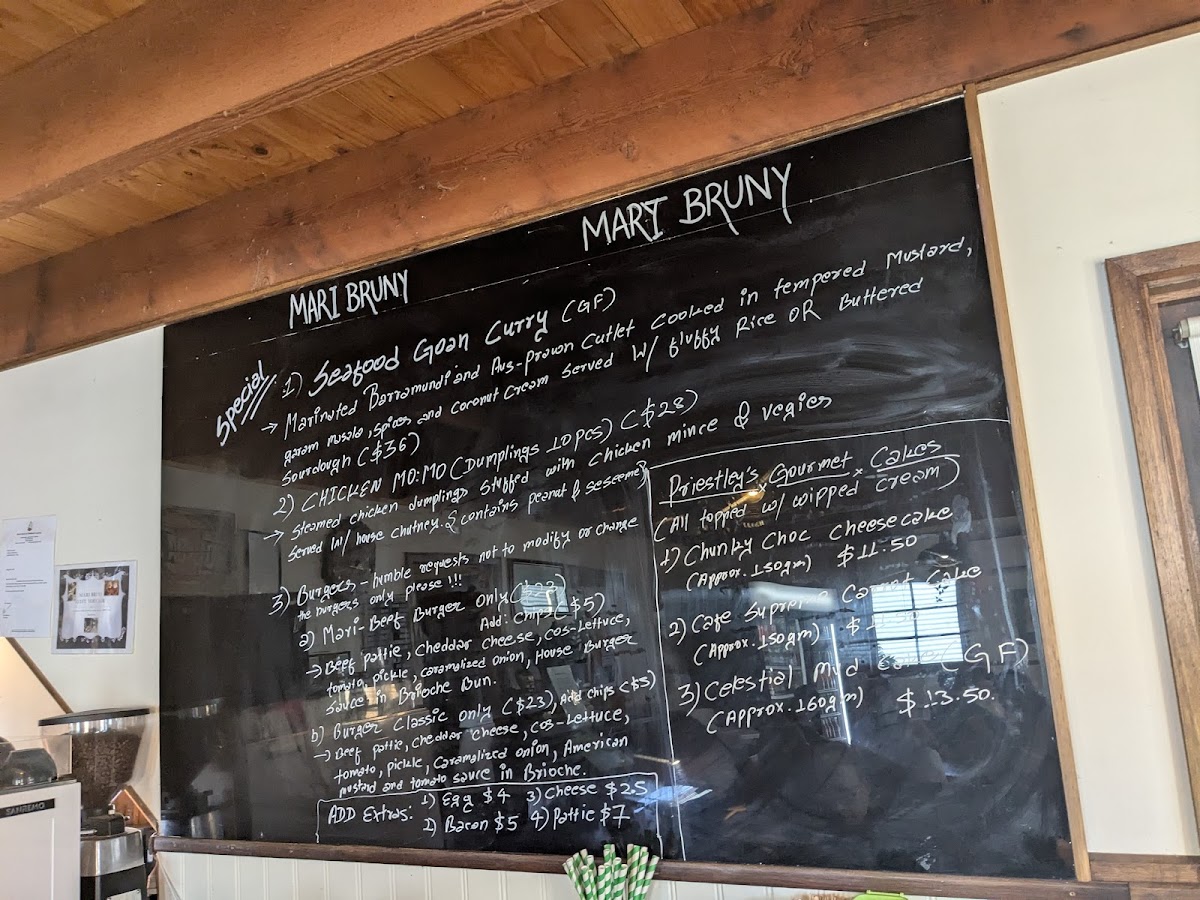 MARI BRUNY
MARI BRUNY
Special
1) Seafood Goan Curry (GF)
→ Marinated Barramundi and Aus-prawn Cutlet Cooked in tempered Mustard,
garam masala, spices and coconut cream served w/ fluffy Rice OR Buttered
Sourdough ($36)
2) CHICKEN MO:MO (Dumplings 10pcs) ($28)
→ Steamed chicken dumplings stuffed with chicken mince & vegies
served w/ house chutney. & contains peanut & seseeme}
3) Burgers - humble requests not to modify or change
the burgers only please !!!
a) Mari-Beef Burger only ($23)
Add: chips ($5)
→ Beef pattie, Cheddar cheese, cos-lettuce,
tomato, pickle, caramalized onion, House Burger
sauce in Brioche Bun.
b) Burger Classic only ($23), Add chips ($5)
→ Beef pattie, cheddar cheese, cos-Lettuce,
tomato, pickle, Caramalized onion, American
mustard and tomato sauce in Brioche.
ADD Extras: 1) Egg $4 3) Cheese $25
2) Bacon $5 4) Pattie $7
Priestley's × Gourmet × Cakes
(All topped w/ wipped cream)
1) Chunky Choc Cheesecake
(Approx. 150gm) $11.50
2) Cafe Carrot Cake
(Approx. 150gm)
3) Celestial Mud (GF)
(Approx. 160gm) $13.50.
SANREMO